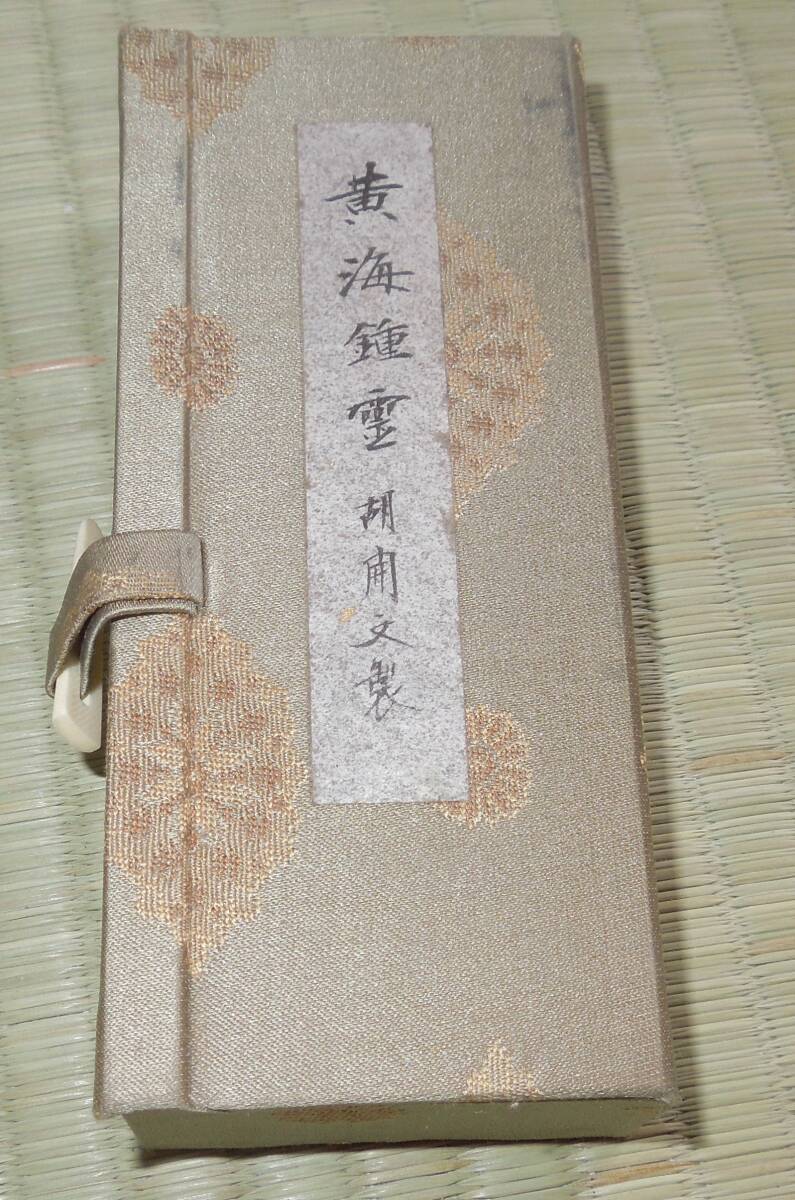 黄海鍾霊胡開文製